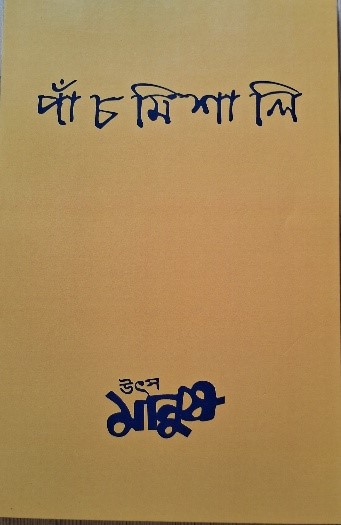 পাঁচমিশালি
উৎস
মানুষ